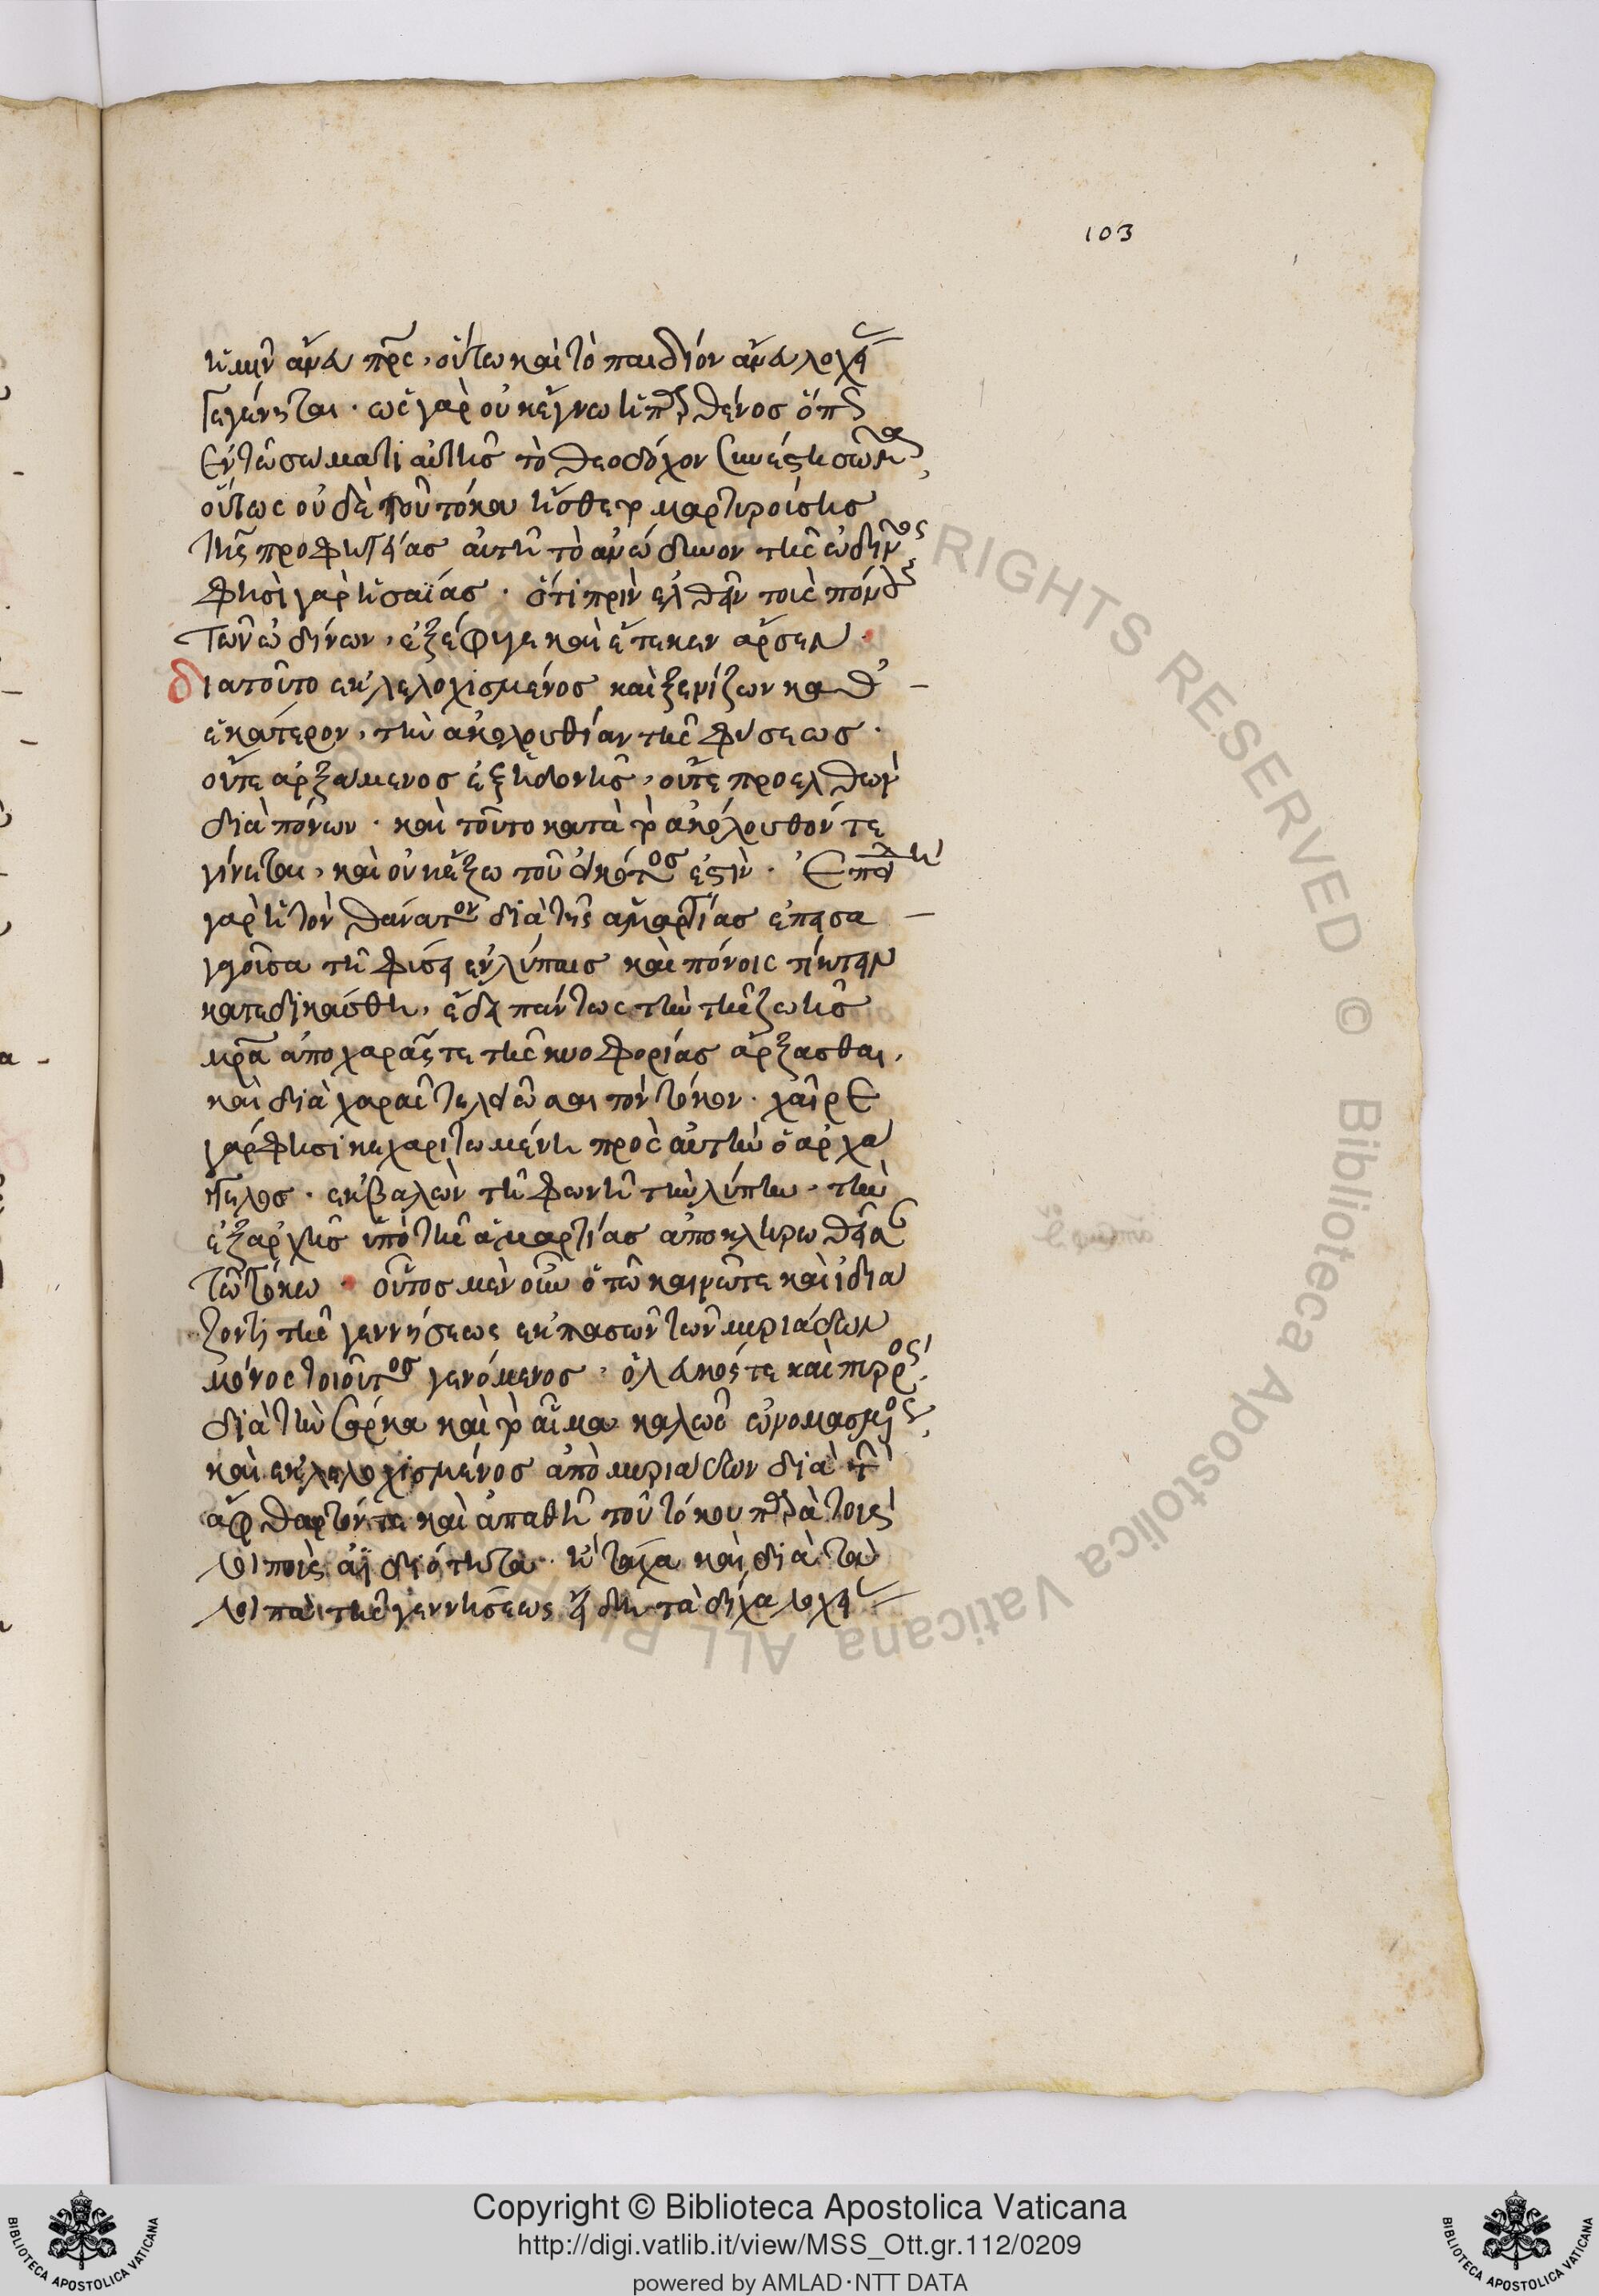 103
ἡμῖν ἄνευ πρς, οὕτω καὶ τὸ παιδίον ἄνευ λοχεί
γεγένηται. ὡς γὰρ οὐκ ἔγνω ἡ παρθένος ὅπως
ἐν τῷ σώματι αὐτῆς τὸ θεοδόχον συνέστη σῶμα,
οὕτως οὐδὲ τοῦ τόκου ᾔσθετο μαρτυρούσης
τῆς προφητείας αὐτῇ τὸ ἀνώδυνον τῆς ὠδῖνος
φησὶ γὰρ ἡσαΐας. ὅτι πρὶν ἐλθεῖν τοὺς πόνους
τῶν ὠδίνων, ἐξέφυγε καὶ ἔτεκεν ἄρσεν.
διατοῦτο ἐκλελοχισμένος καὶ ξενίζων καθ'
ἑκάτερον, τὴν ἀκολουθίαν τῆς φύσεως.
οὔτε ἀρξάμενος ἐξ ἡδονῆς, οὔτε προελθὼν
διὰ πόνων. καὶ τοῦτο κατὰ τὸ ἀκόλουθόν τε
γίνεται, καὶ οὐκ ἔξω τοῦ εἰκότος ἐστὶν. Ἐπειδὴ
γὰρ ἡ τὸν θάνατον διὰ τῆς ἁμαρτίας ἐπεισα
γαγοῦσα τῇ φύσει ἐν λύπαις καὶ πόνοις τίκτειν
κατεδικάσθη, ἔδει πάντως τὴν τῆς ζωῆς
μρα ἀπὸ χαρᾶς τε τῆς κυοφορίας ἄρξασθαι,
καὶ διὰ χαρᾶς τελειῶσαι τὸν τόκον. χαῖρε
γάρ φησι κεχαριτωμένη πρὸς αὐτὴν ὁ ἀρχά
γγελος. ἐκβαλὼν τῇ φωνῇ τὴν λύπην. τὴν
ἐξαρχῆς ὑπὸ τῆς ἁμαρτίας ἀποκληρωθεῖσαν
τῷ τόκῳ. οὗτος μὲν οὖν ὁ τῷ καινῷ τε καὶ ἰδιά
ζοντι τῆς γεννήσεως ἐκ πασῶν τῶν μυριάδων
μόνος τοιοῦτος γενόμενος, ὁ λευκός τε καὶ πυρρός,
διὰ τὴν σάρκα καὶ τὸ αἷμα καλῶς ὠνομασμένος,
καὶ ἐκλελοχισμένος ἀπὸ μυριάδων διὰ τὴν
ἄφθαρτόν τε καὶ ἀπαθῆ τοῦ τόκου παρὰ τοὺς
λοιποὺς ἀϊδιότητα. ἢ τάχα καὶ διὰ τὰς
λοιπὰς τῆς γεννήσεως ἤδη τὰς δίχα λοχεί
Copyright © Biblioteca Apostolica Vaticana
http://digi.vatlib.it/view/MSS_Ott.gr.112/0209
powered by AMLAD·NTT DATA
BIBLIOTECA APOSTOLICA VATICANA
BIBLIOTECA APOSTOLICA VATICANA
ALL RIGHTS RESERVED © Biblioteca Apostolica Vaticana